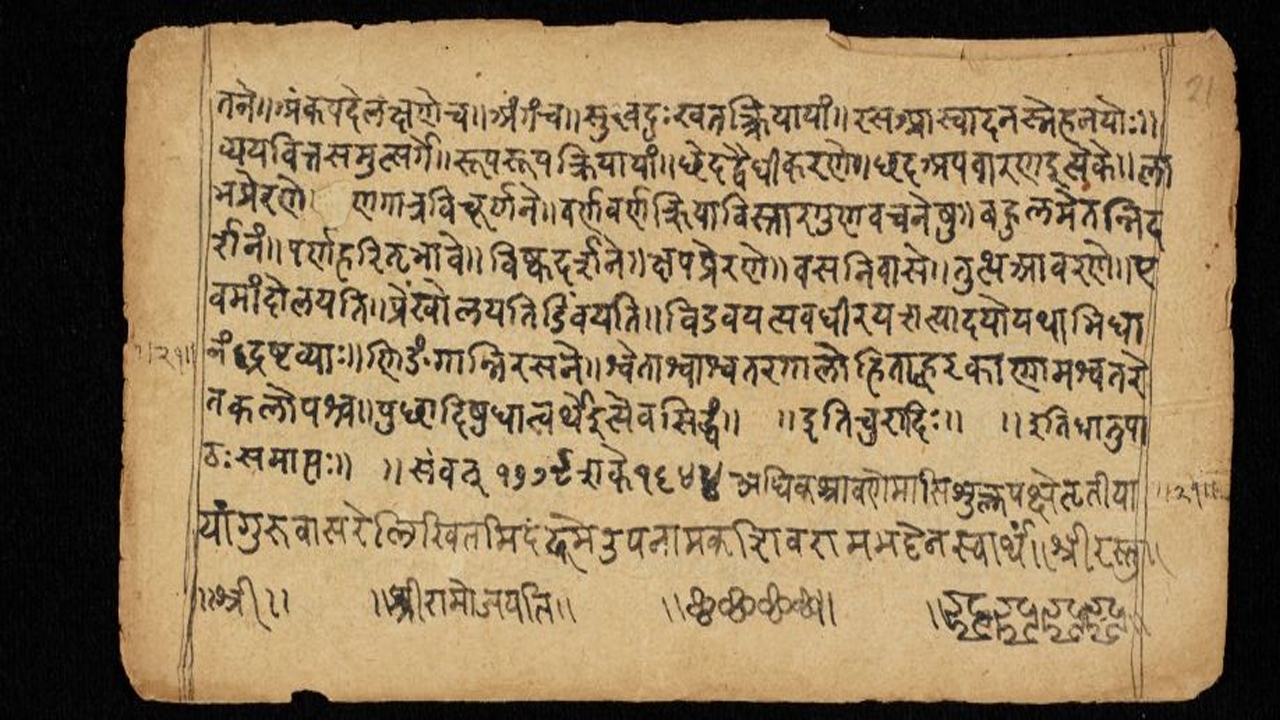 तने॥अंकपदेलक्षणेच॥अंगंच॥सुखदुःखतत्क्रियायां॥रसआस्वादनस्नेहनयोः॥
व्ययवित्तसमुत्सर्गे॥रूपरूपक्रियायां॥छेदद्वैधीकरणे॥छदअपवारणइत्येके॥ला
भप्रेरणे॥ णगात्रविचूर्णने॥वर्णवर्णक्रियाविस्तारगुणवचनेषु॥बहुलमेतन्निद
र्शनं॥पर्णहरितभावे॥विष्कदर्शने॥क्षपप्रेरणे॥वसनिवासे॥तुत्थआवरणे॥ए
वमांदोलयति॥प्रेंखोलयतिडिंवयति॥विडवयत्यवधीरयत्यादयोयथाभिधा
नंद्रष्टव्याः॥णिङंगान्निरसने॥श्वेताश्वाश्वतरगालोहिताह्वरकाणामश्वतरे
तकलोपश्च॥पुछादिषुधात्वर्थेइत्येवसिद्धं॥ ॥इतिचुरादिः॥ ॥इतिधातुपा
ठः समाप्तः॥ ॥संवत् १७७९शके१६४४ अधिकश्रावणेमासिशुक्लपक्षेतृतीया
यांगुरुवासरेलिखितमिदं स्वार्थं॥श्रीरस्तु॥
॥श्री॥ ॥श्रीरामोजयति॥
21
॥२१॥
॥२१॥